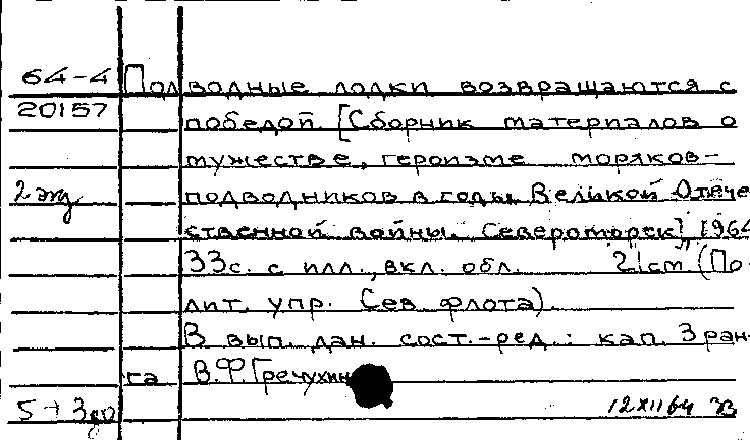 64-4 Подводные лодки возвращаются с
20157 победой. [Сборник материалов о
мужестве, героизме моряков-
2 экз подводников в годы Великой Отече
ственной войны. Североморск] 1964
33с. с илл., вкл. обл. 21см (По-
лит. упр. Сев флота).
В вып. дан. сост.-ред.: кап. 3 ран-
га В.Ф.Гречухин
5 + 3 12 XII 64